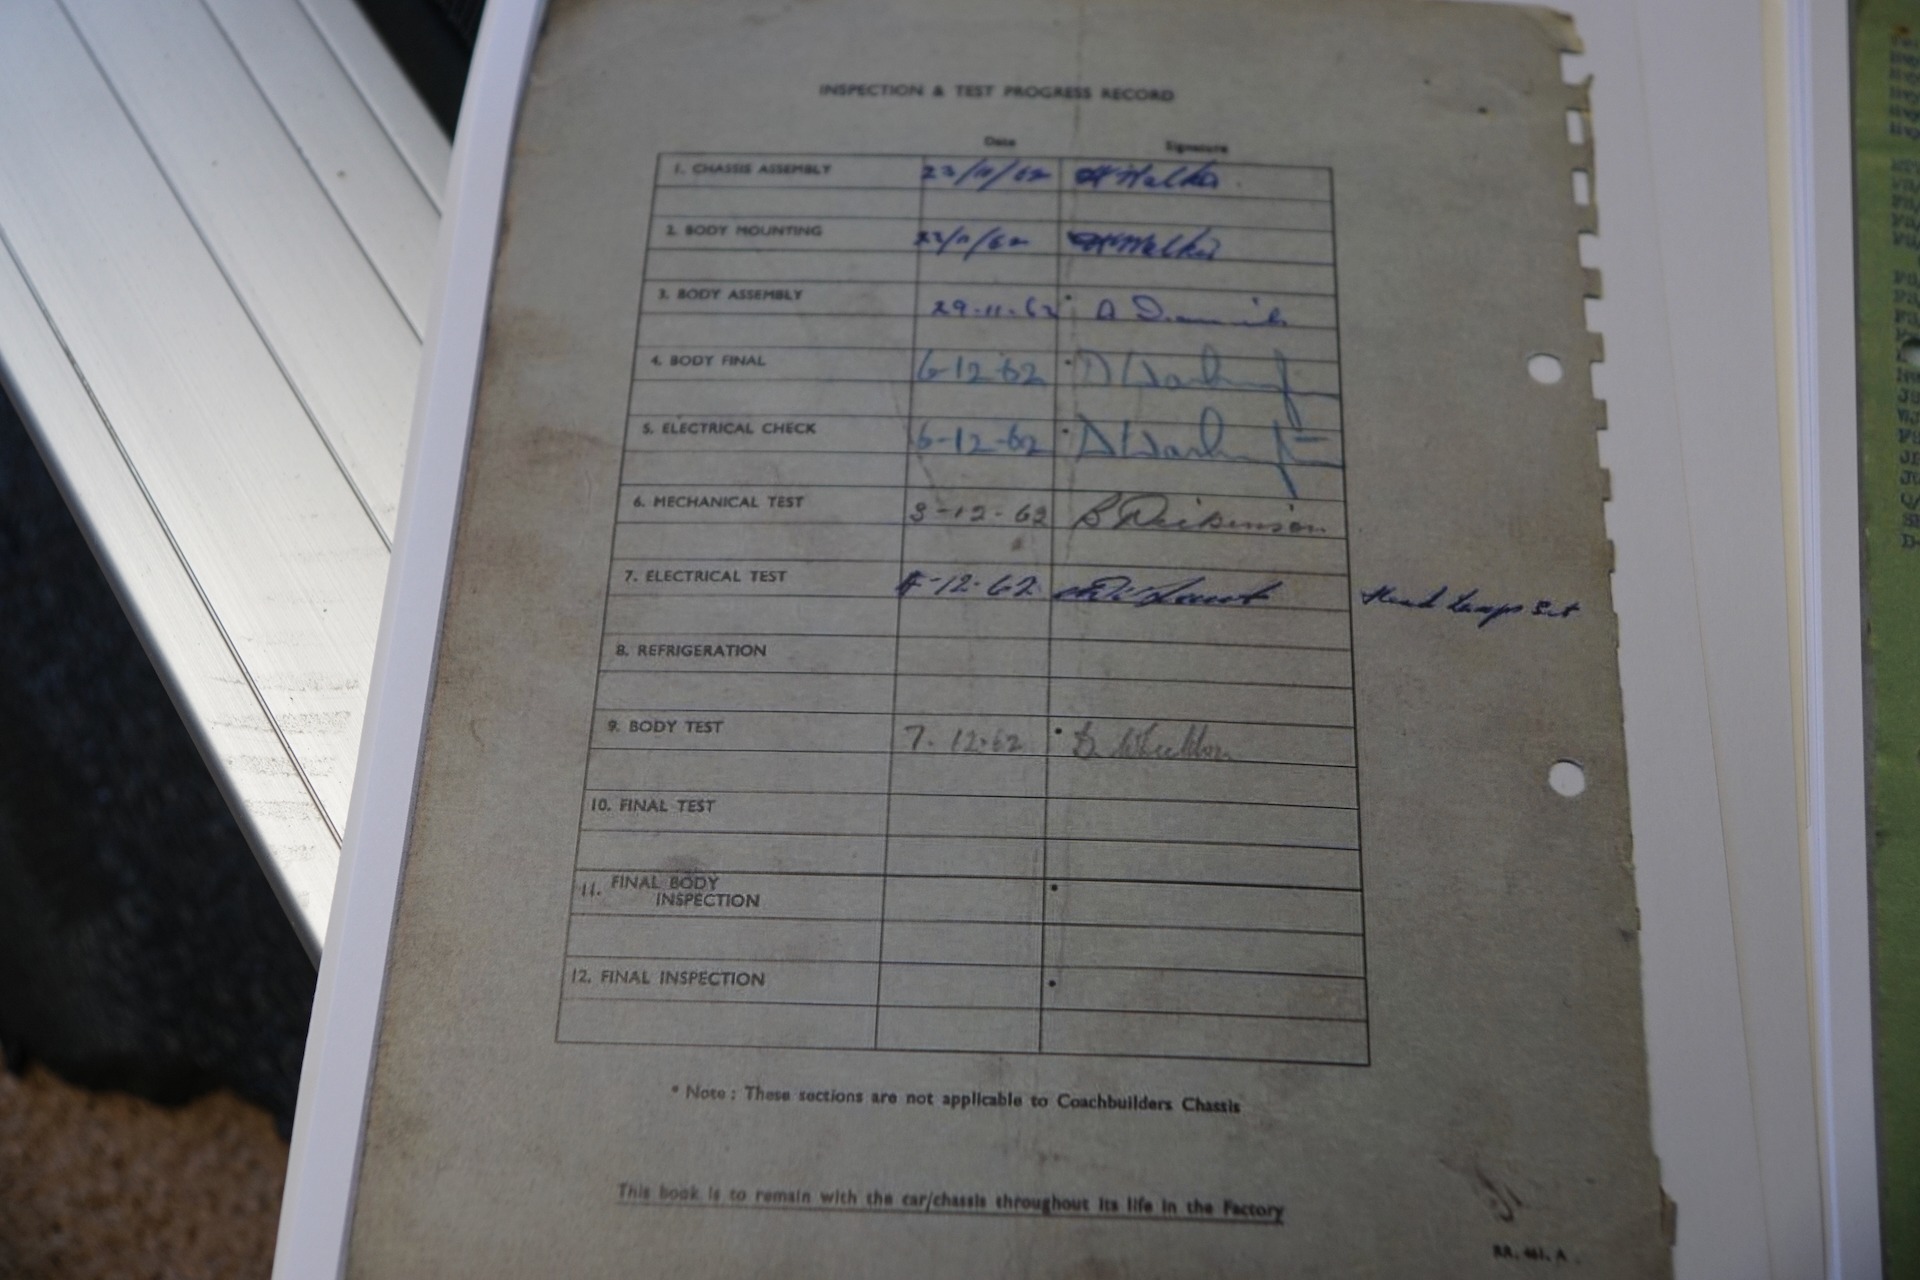 INSPECTION & TEST PROGRESS RECORD
Date Signature
1. CHASSIS ASSEMBLY 23/11/62 Walker
2. BODY MOUNTING 23/11/62 Walker
3. BODY ASSEMBLY 29-11-62 • A
4. BODY FINAL 6-12-62 • D
5. ELECTRICAL CHECK 6-12-62 •
6. MECHANICAL TEST 3-12-62 B Dickenson
7. ELECTRICAL TEST -12-62 Head Lamps Set
8. REFRIGERATION
9. BODY TEST 7.12.62 •
10. FINAL TEST
11. FINAL BODY
INSPECTION •
12. FINAL INSPECTION •
* Note : These sections are not applicable to Coachbuilders Chassis
This book is to remain with the car/chassis throughout its life in the Factory
RR. 461. A